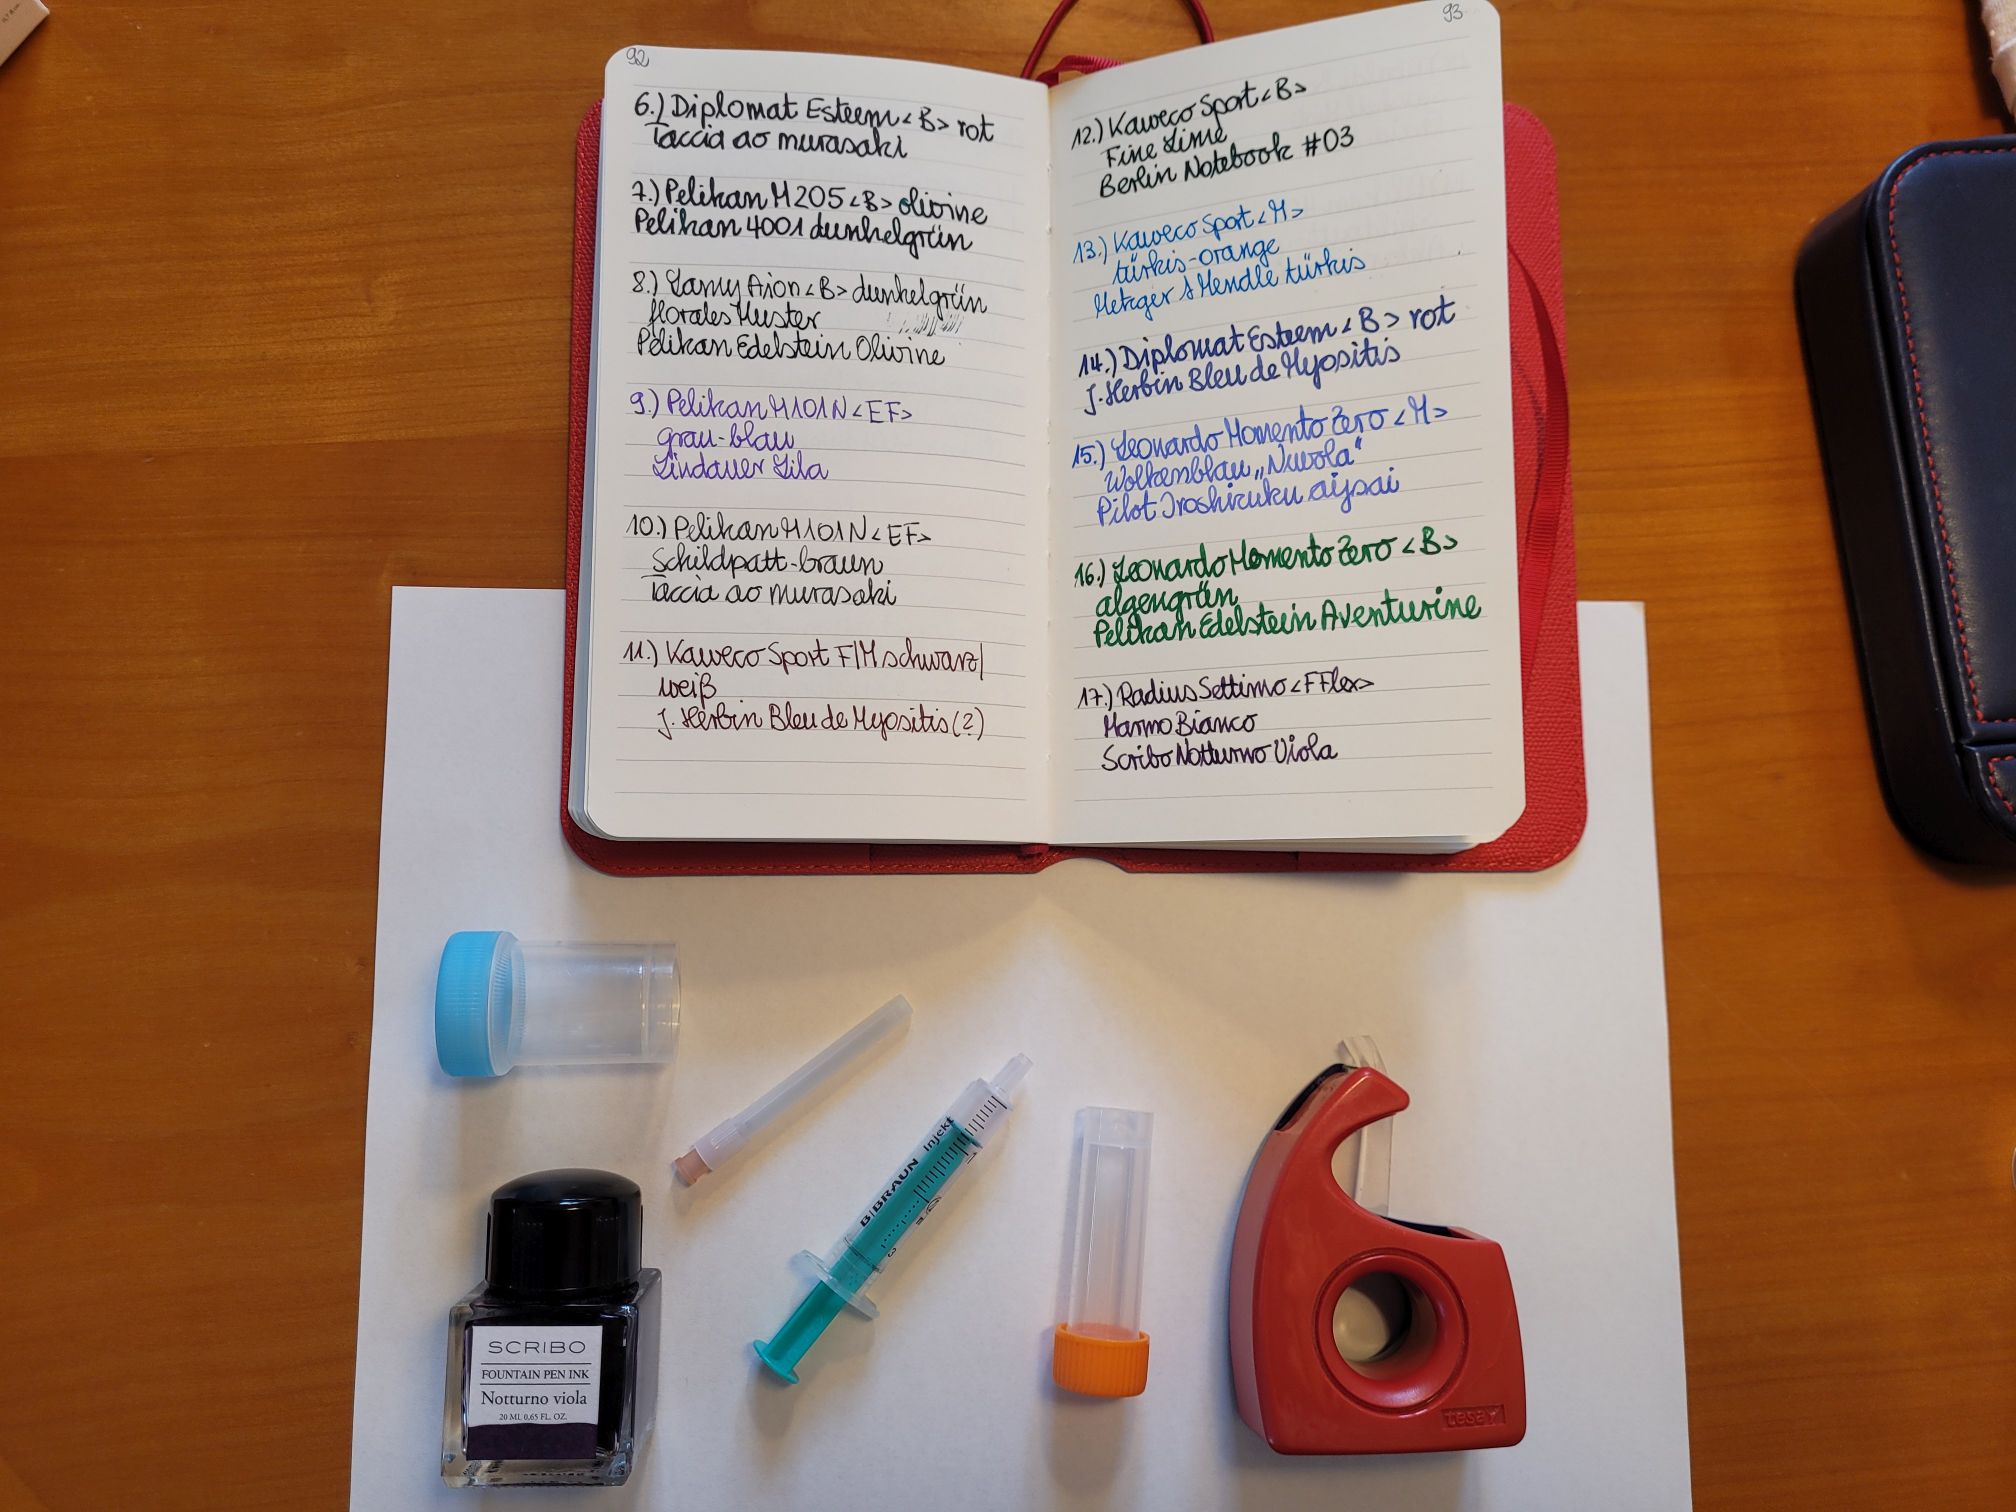 92
6.) Diplomat Esteem <B> rot
Taccia ao murasaki
7.) Pelikan M205 <B> olivine
Pelikan 4001 dunkelgrün
8.) Lamy Aion <B> dunkelgrün
florales Muster
Pelikan Edelstein Olivine
9.) Pelikan M101N <EF>
grau-blau
Lindauer Lila
10.) Pelikan M101N <EF>
Schildpatt-braun
Taccia ao murasaki
11.) Kaweco Sport F/M schwarz/
weiß
J. Herbin Bleu de Myositis (?)
93
12.) Kaweco Sport <B>
Fine Lime
Berlin Notebook #03
13.) Kaweco Sport <M>
türkis-orange
Metzger & Mendle türkis
14.) Diplomat Esteem <B> rot
J. Herbin Bleu de Myositis
15.) Leonardo Momento Zero <M>
Wolkenblau „Nuvola“
Pilot Iroshizuku aijsai
16.) Leonardo Momento Zero <B>
algengrün
Pelikan Edelstein Aventurine
17.) Radius Settimo <F Flex>
Marmo Bianco
Scribo Notturno Viola
B|BRAUN Injekt
SCRIBO
FOUNTAIN PEN INK
Notturno viola
20 ML 0,65 FL. OZ.
tesa